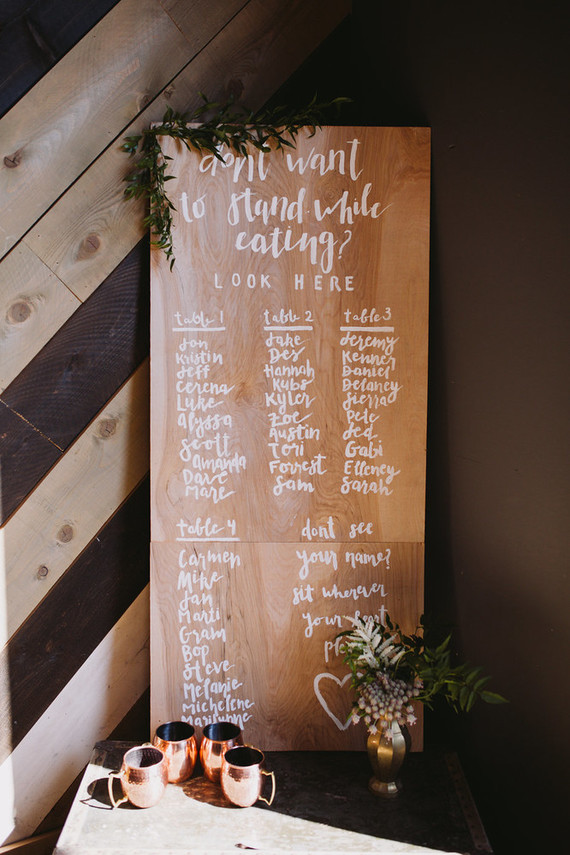 don't want
to stand while
eating?
LOOK HERE
table 1
Jon
Kristin
Jeff
Cerena
Luke
Alyssa
Scott
Amanda
Dave
Mare
table 2
Jake
Des
Hannah
Kubs
Kyler
Zoe
Austin
Tori
Forrest
Sam
table 3
Jeremy
Kenner
Daniel
Delaney
Sierra
Pete
Jed
Gabi
Elleney
Sarah
table 4
Carmen
Mike
Jan
Marti
Gram
Bop
Steve
Melanie
Michelene
Marilynne
dont see
your name?
sit wherever
your